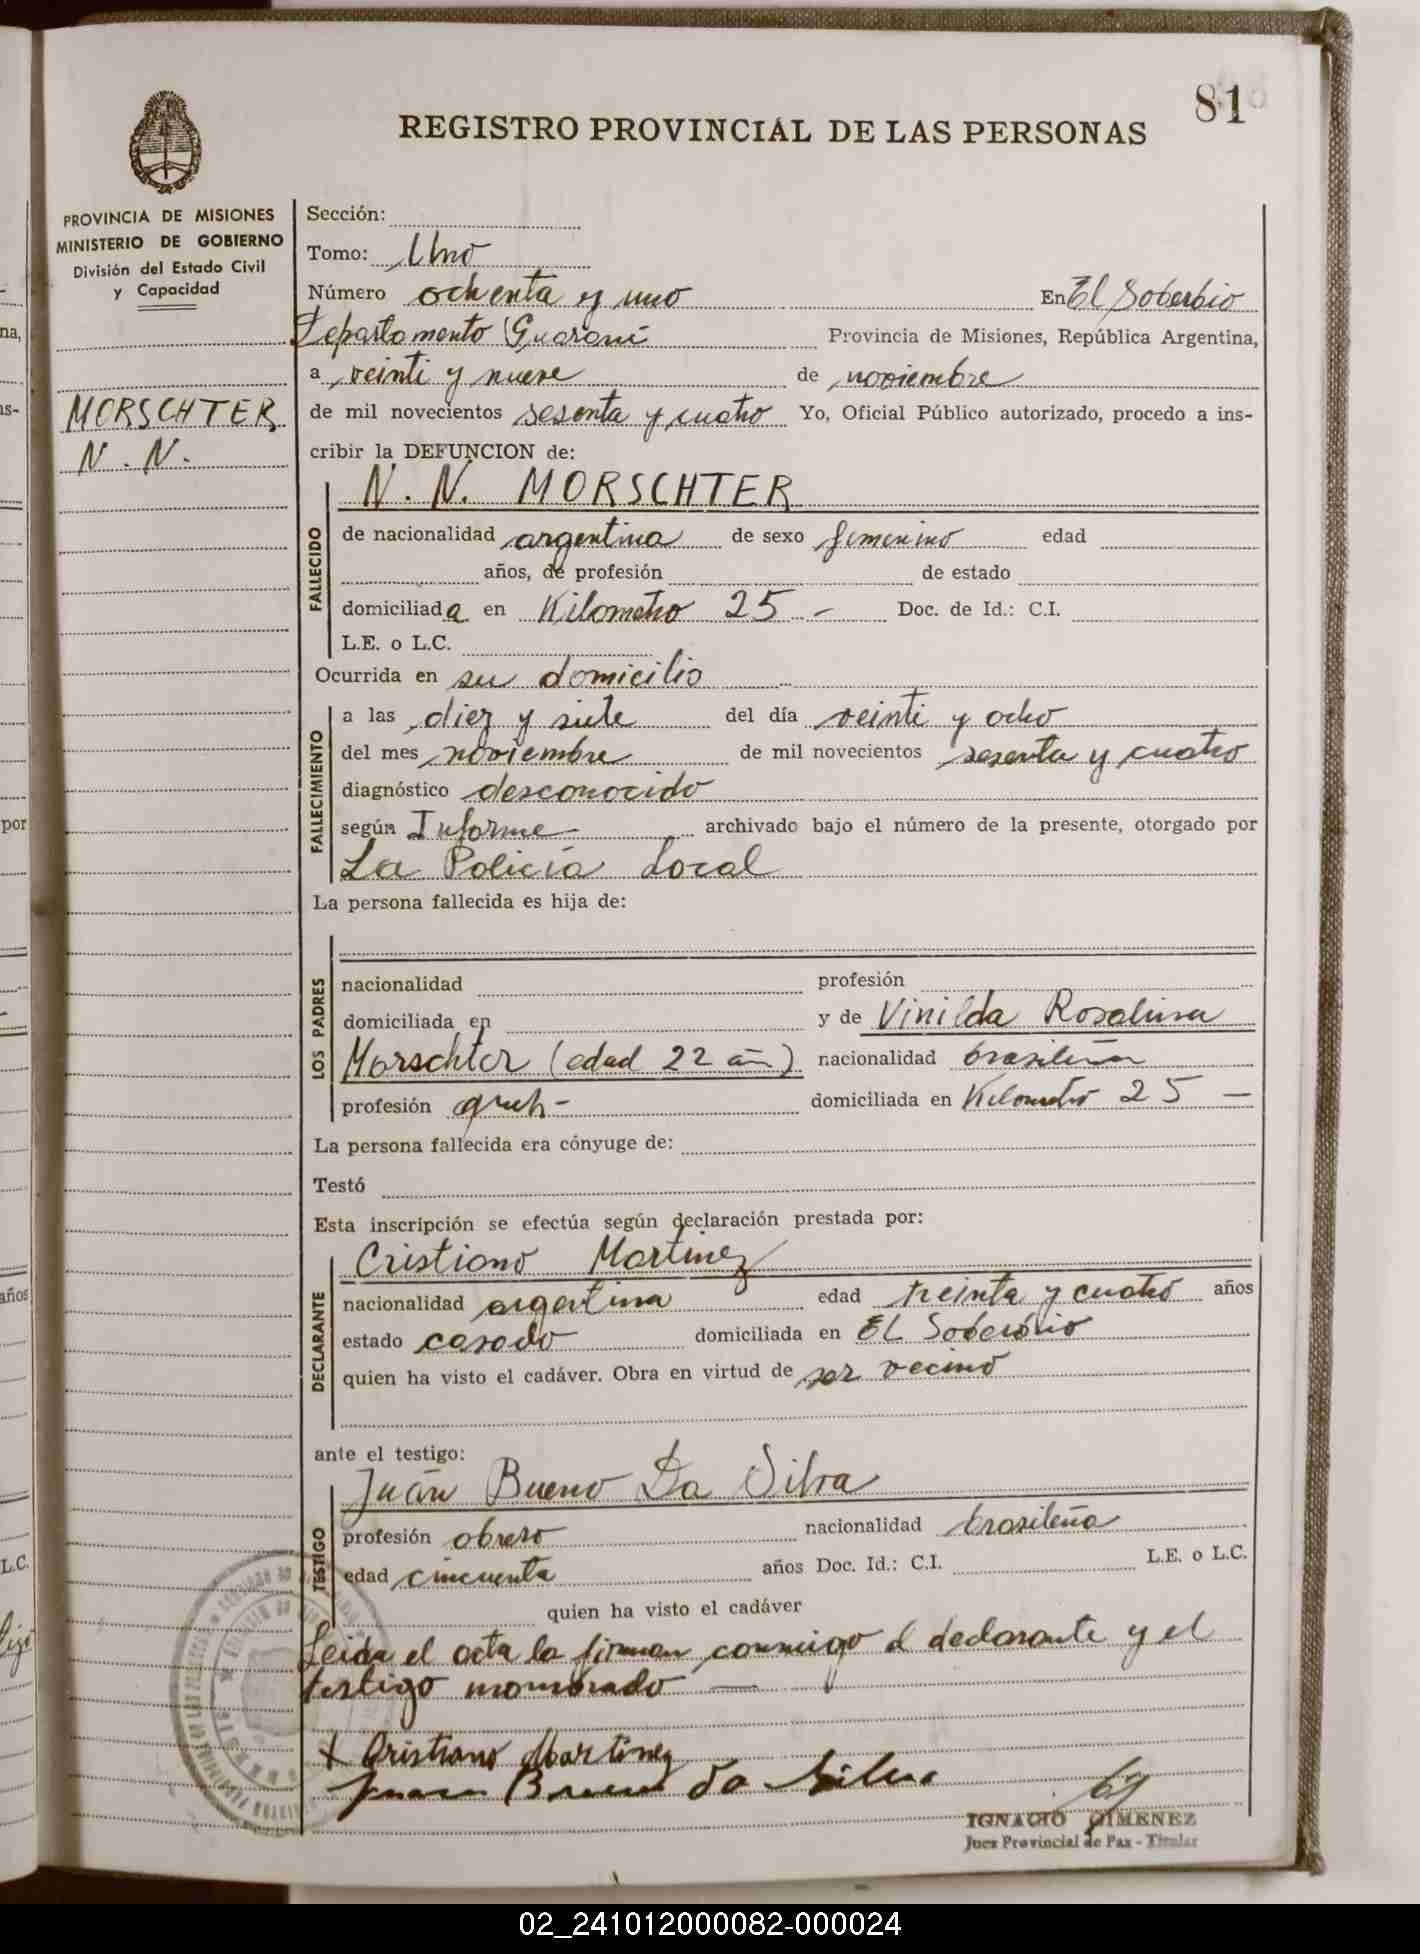 81
REGISTRO PROVINCIAL DE LAS PERSONAS
PROVINCIA DE MISIONES
MINISTERIO DE GOBIERNO
División del Estado Civil
y Capacidad
MORSCHTER
N. N.
Sección:
Tomo: Uno
Número ochenta y uno En El Soberbio
Departamento Guaraní Provincia de Misiones, República Argentina,
a veinti y nueve de noviembre
de mil novecientos sesenta y cuatro Yo, Oficial Público autorizado, procedo a ins-
cribir la DEFUNCION de:
N. N. MORSCHTER
FALLECIDO
de nacionalidad argentina de sexo femenino edad
años, de profesión de estado
domiciliada en Kilometro 25 - Doc. de Id.: C.I.
L.E. o L.C.
Ocurrida en su domicilio
FALLECIMIENTO
a las diez y siete del día veinti y ocho
del mes noviembre de mil novecientos sesenta y cuatro
diagnóstico desconocido
según Informe archivado bajo el número de la presente, otorgado por
La Policía Local
La persona fallecida es hija de:
LOS PADRES
nacionalidad profesión
domiciliada en y de Vinilda Rosalina
Morschter (edad 22 añ) nacionalidad brasileña
profesión domiciliada en Kilometro 25 -
La persona fallecida era cónyuge de:
Testó
Esta inscripción se efectúa según declaración prestada por:
Cristiano Martinez
DECLARANTE
nacionalidad argentina edad treinta y cuatro años
estado casado domiciliada en EL Soberbio
quien ha visto el cadáver. Obra en virtud de ser vecino
ante el testigo:
Juán Bueno Da Silva
TESTIGO
profesión obrero nacionalidad brasileña
edad cincuenta años Doc. Id.: C.I. L.E. o L.C.
quien ha visto el cadáver
Leida el acta la firman conmigo el declarante y el
testigo nombrado —
+ Cristiano Martinez
Juan Bueno da Silva
IGNACIO GIMENEZ
Juez Provincial de Paz - Titular
02_241012000082-000024